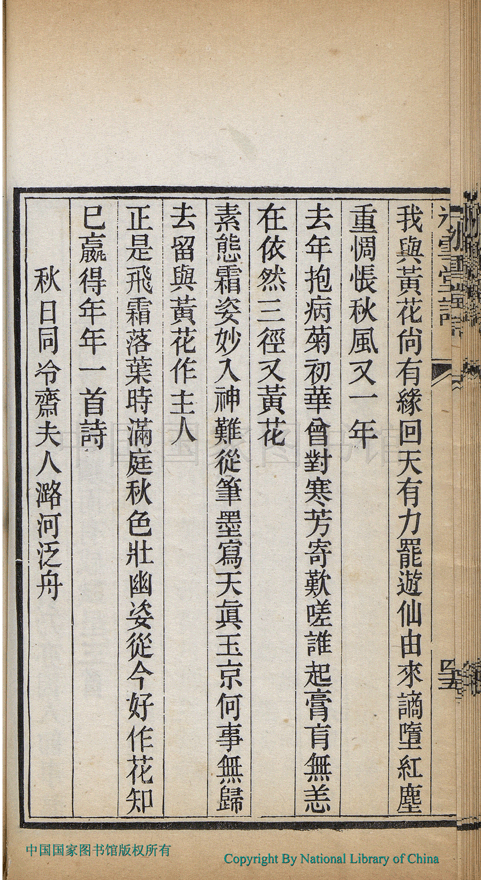 我與黃花尙有緣回天有力罷遊仙由來謫墮紅塵
重惆悵秋風又一年
去年抱病菊初華曾對寒芳寄歎嗟誰起膏肓無恙
在依然三徑又黃花
素態霜姿妙入神難從筆墨寫天眞玉京何事無歸
去留與黃花作主人
正是飛霜落葉時滿庭秋色壯幽姿從今好作花知
已贏得年年一首詩
秋日同冷齋夫人潞河泛舟
中国国家图书馆版权所有
Copyright By National Library of China